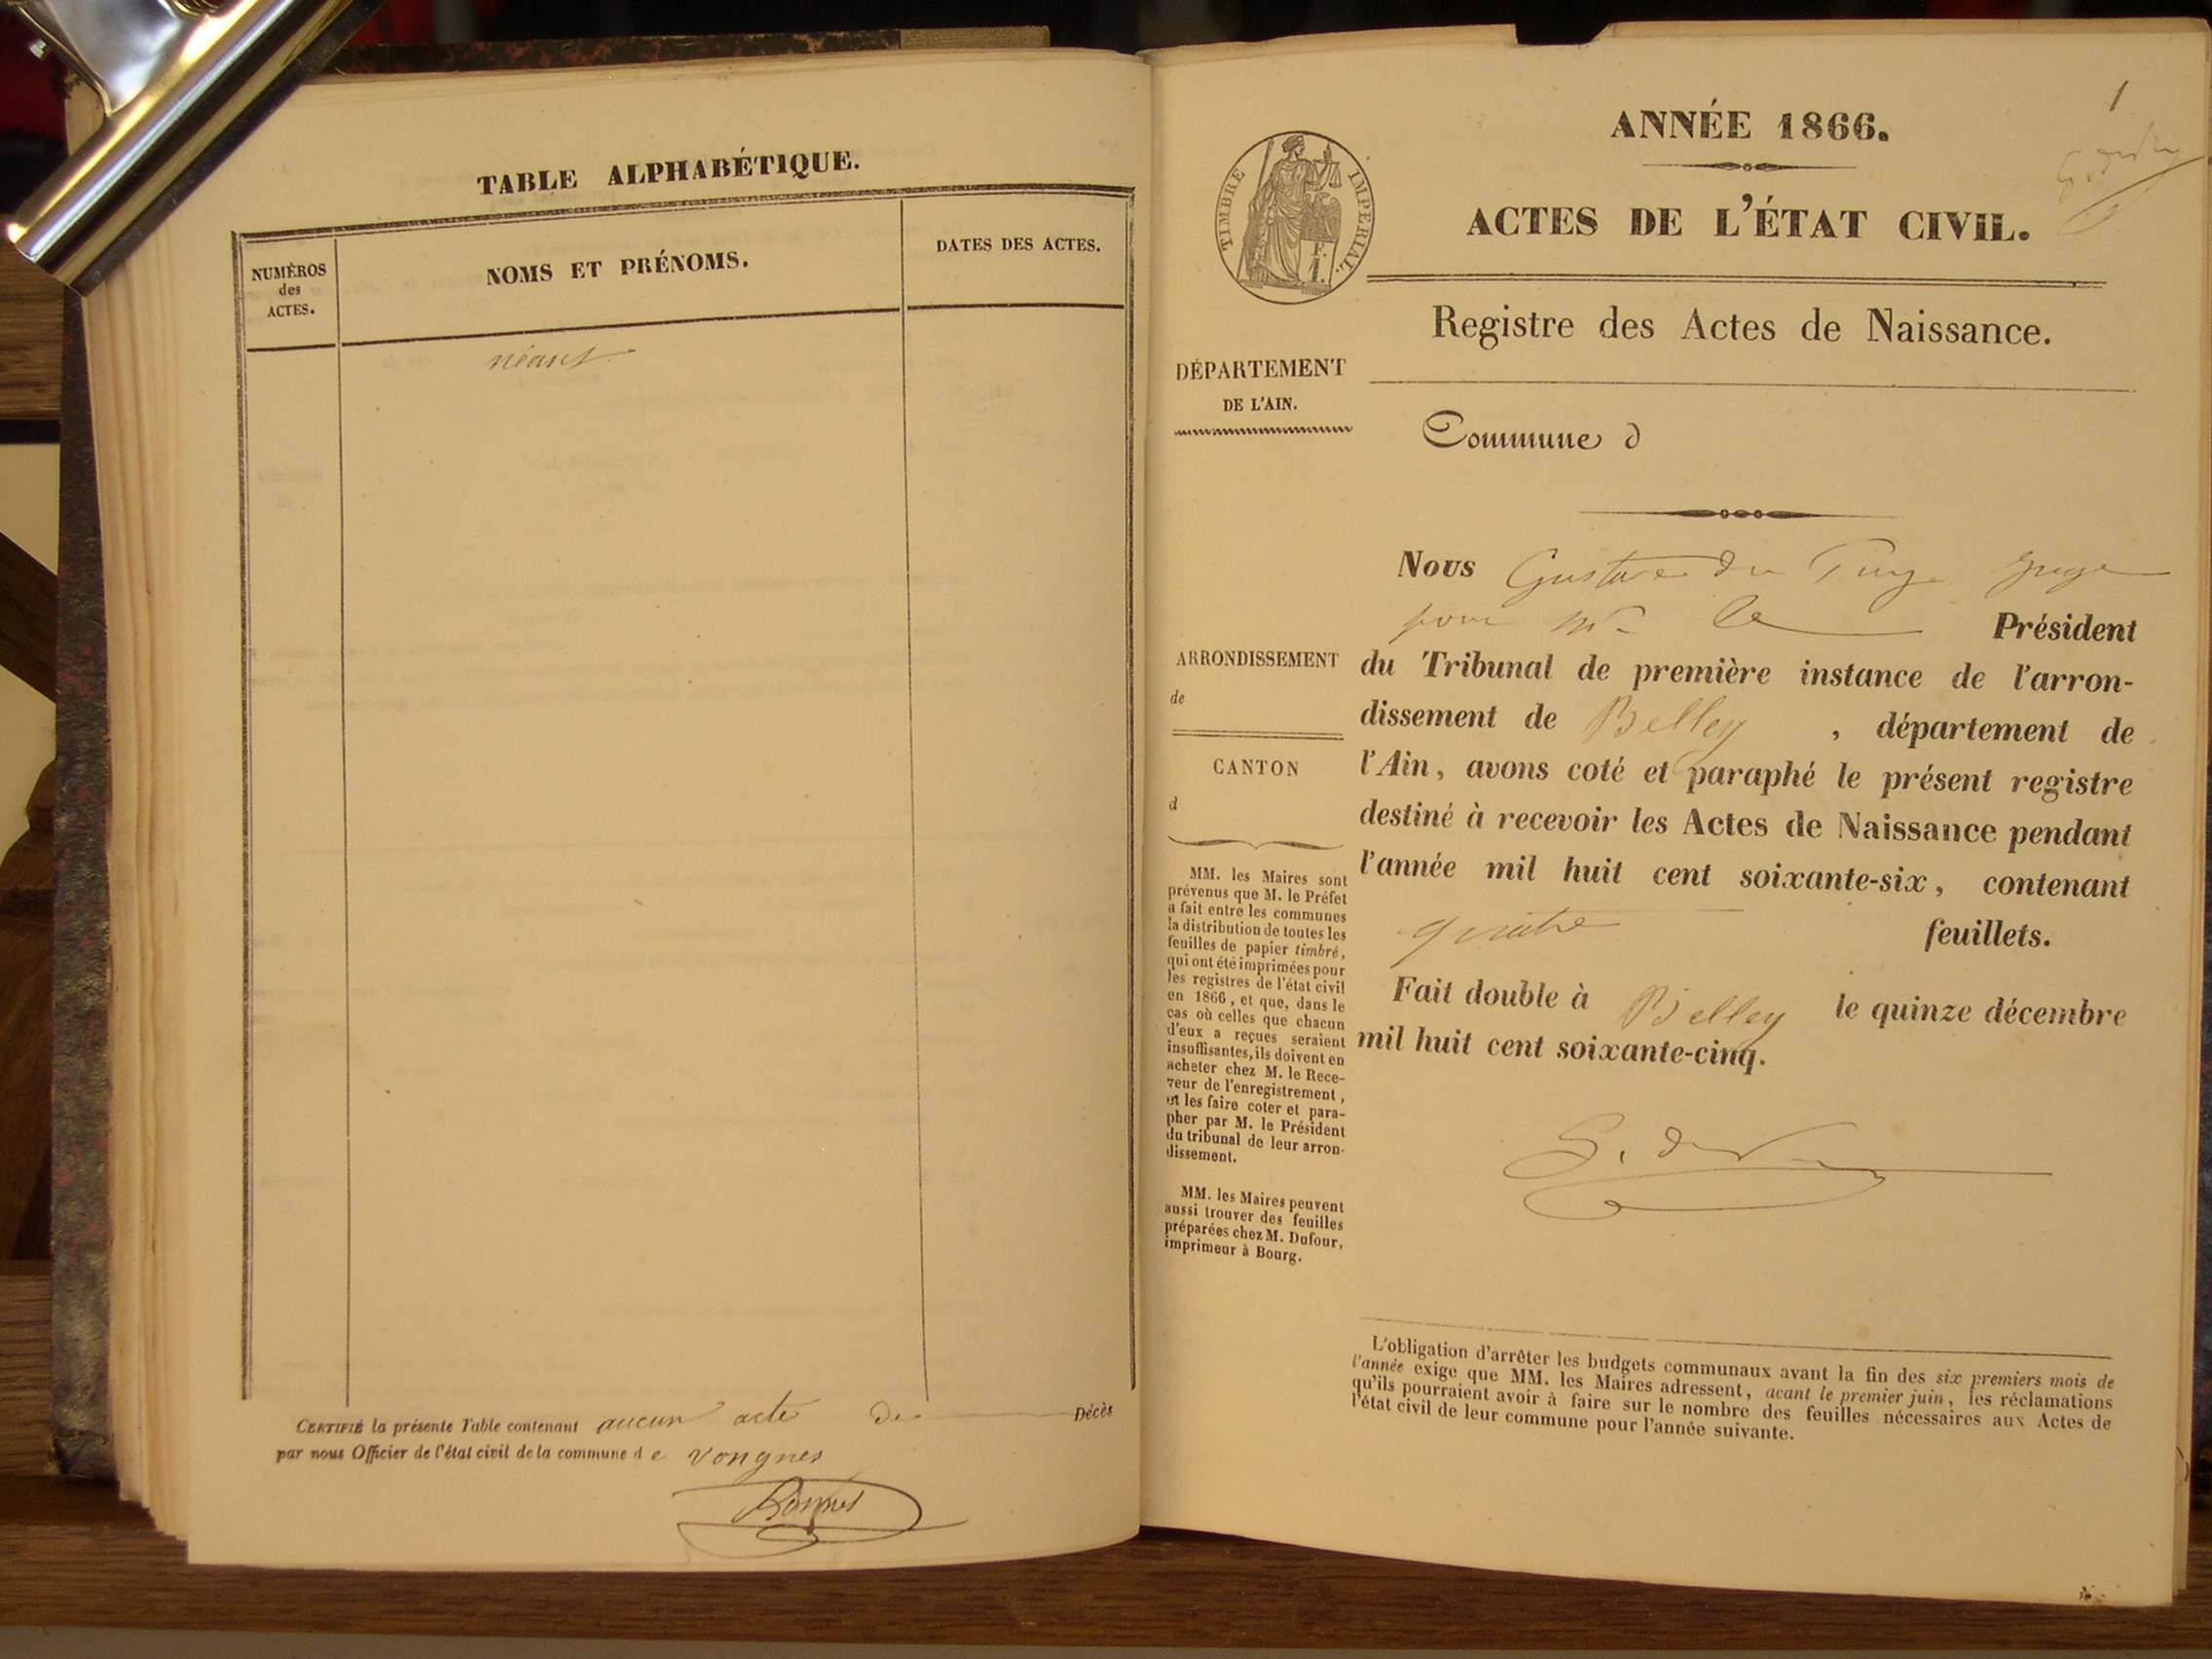 TABLE ALPHABÉTIQUE.
NUMÉROS
des
ACTES.
NOMS ET PRÉNOMS.
DATES DES ACTES.
néant
CERTIFIÉ la présente Table contenant aucun acte de Décès
par nous Officier de l'état civil de la commune d e vongnes
Bonnet
1
ANNÉE 1866.
ACTES DE L'ÉTAT CIVIL.
TIMBRE IMPÉRIAL.
Registre des Actes de Naissance.
DÉPARTEMENT
DE L'AIN.
Commune d
ARRONDISSEMENT
de
CANTON
d
MM. les Maires sont
prévenus que M. le Préfet
a fait entre les communes
la distribution de toutes les
feuilles de papier timbré,
qui ont été imprimées pour
les registres de l'état civil
en 1866, et que, dans le
cas où celles que chacun
d'eux a reçues seraient
insuffisantes, ils doivent en
acheter chez M. le Rece-
veur de l'enregistrement,
et les faire coter et para-
pher par M. le Président
du tribunal de leur arron-
dissement.
MM. les Maires peuvent
aussi trouver des feuilles
préparées chez M. Dufour,
imprimeur à Bourg.
Nous Gustave du Puy juge
pour Mr le Président
du Tribunal de première instance de l'arron-
dissement de Belley, département de
l'Ain, avons coté et paraphé le présent registre
destiné à recevoir les Actes de Naissance pendant
l'année mil huit cent soixante-six, contenant
quatre feuillets.
Fait double à Belley le quinze décembre
mil huit cent soixante-cinq.
L'obligation d'arrêter les budgets communaux avant la fin des six premiers mois de
l'année exige que MM. les Maires adressent, avant le premier juin, les réclamations
qu'ils pourraient avoir à faire sur le nombre des feuilles nécessaires aux Actes de
l'état civil de leur commune pour l'année suivante.